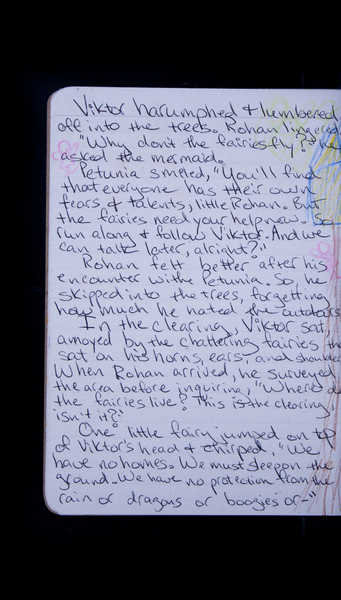 Viktor harumphed & lumbered
off into the trees. Rohan lingered.
"Why don't the fairies fly?" he
asked the mermaid.
Petunia smiled, "You'll find
that everyone has their own
fears & talents, little Rohan. But
the fairies need your help now. So
run along & follow Viktor. And we
can talk later, alright?"
Rohan felt better after his
encounter withe Petunia. So, he
skipped into the trees, forgetting
how much he hated the outdoors.
In the clearing, Viktor sat,
annoyed by the chattering fairies
sat on his horns, ears, and shoulders
When Rohan arrived, he surveyed
the area before inquiring, "Where do
the fairies live? This is the clearing,
isn't it?"
One little fairy jumped on top
of Viktor's head & chirped, "We
have no homes. We must sleep on the
ground. We have no protection from the
rain or dragons or boogies or-"